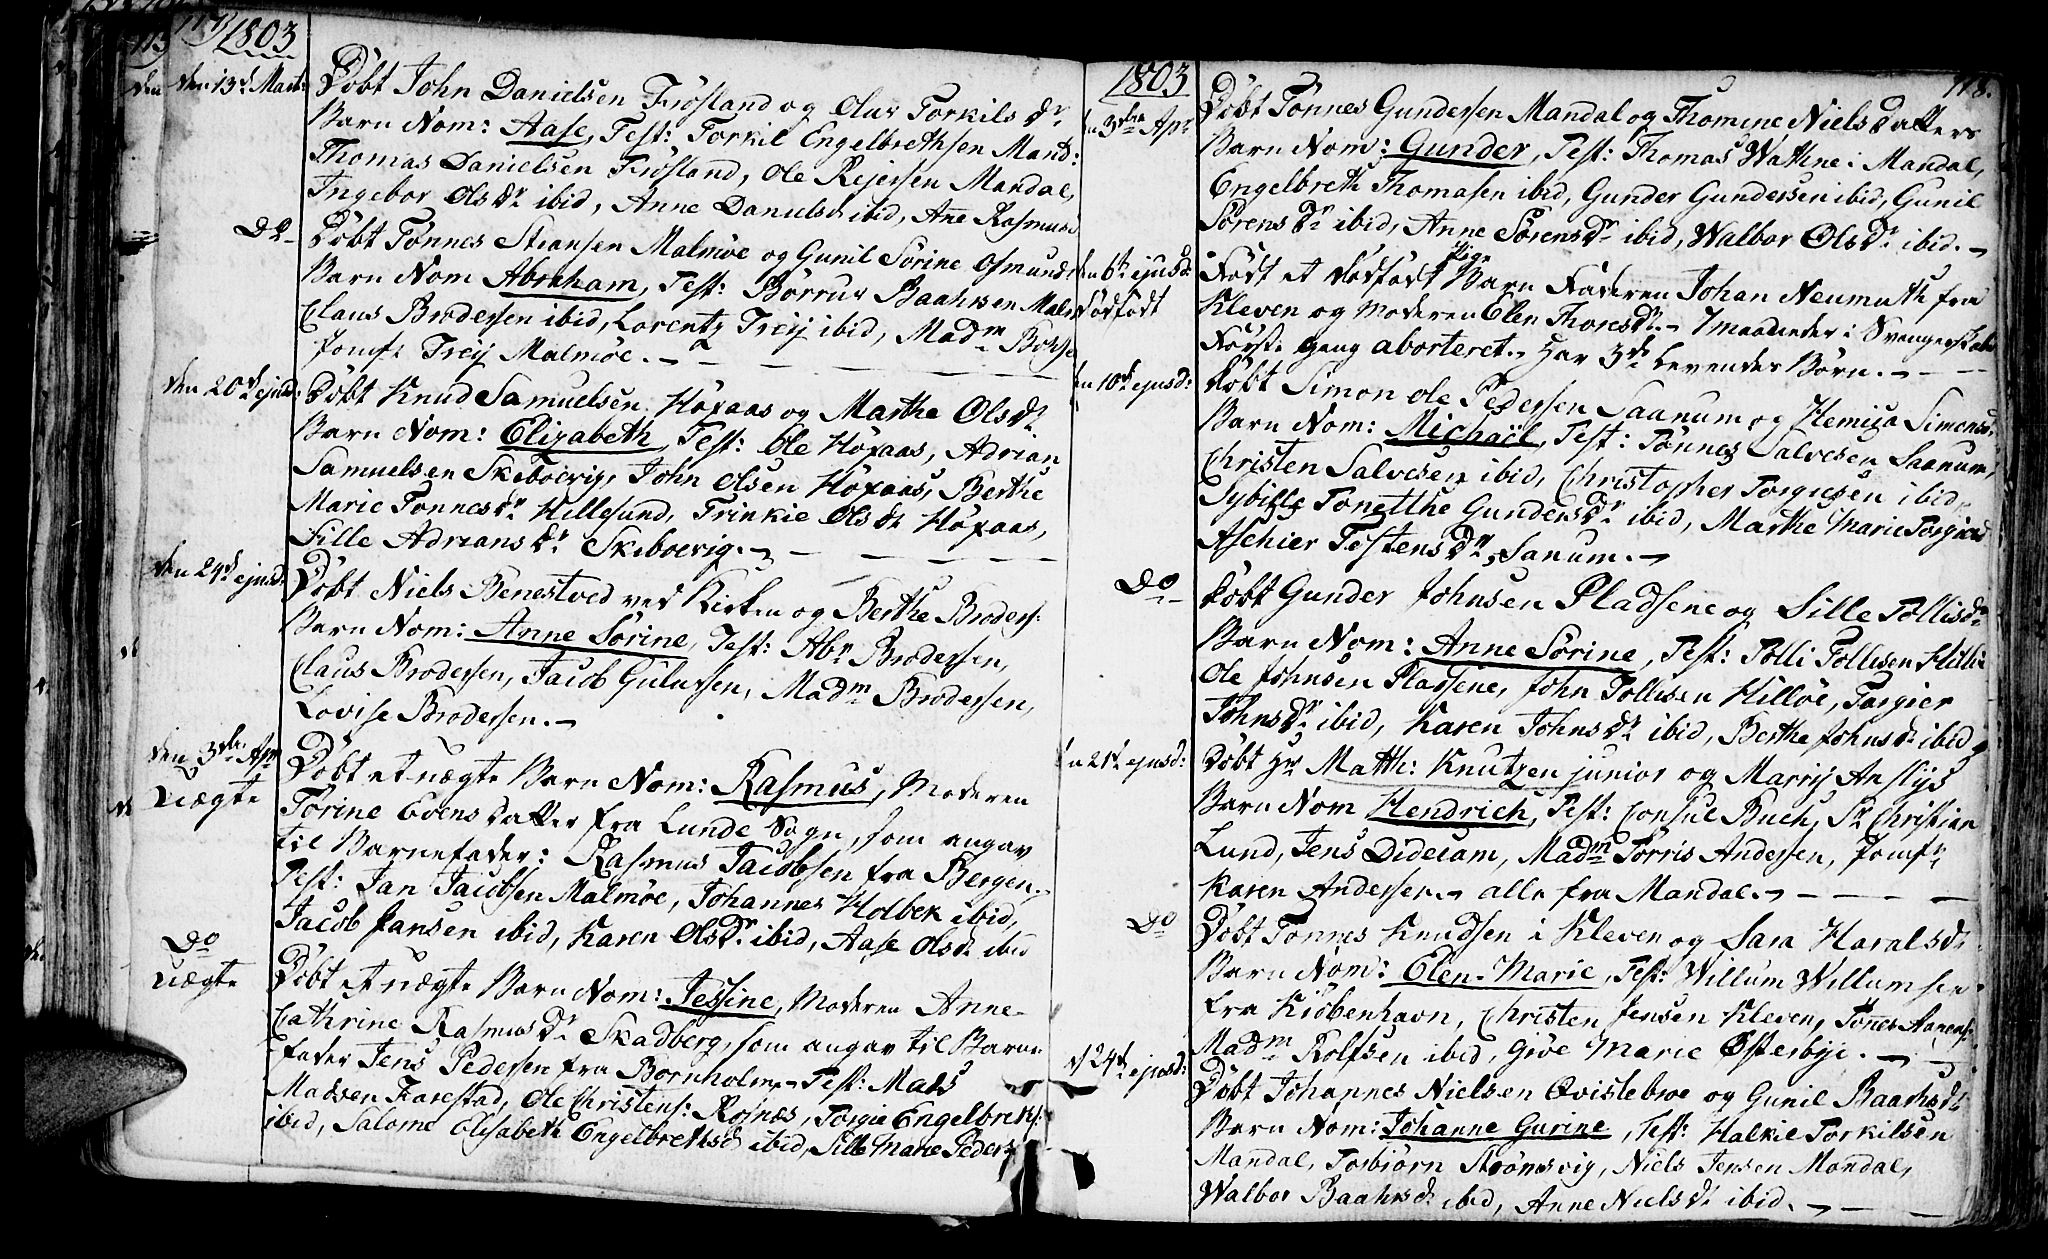 1803
den 13de Marts
Döbt John Danielsen Fröstand og Olur Torkilsdr
Barn Nom: Aase, Test: Torkil Engelbrethsen Mand:
Thomas Danielsen Fröstand, Ole Rejersen Mandal,
Ingebor Olsdr ibid, Anne Danielsd ibid, Ane Rasmusd
Do
Döbt Tönnes Steansen Malmöe og Gunil Sörine Osmunds
Barn Nom Abraham, Test: Börrus Baahrsen Malm
Claus Brodersen ibid, Lorentz Treij ibid, Madm Boysе
Jomfr Treij Malmöe.
den 20de ejusd:
Döbt Knud Samuelsen Höxaas og Marthe Olsdr
Barn Nom: Elizabeth, Test: Ole Höxaas, Adrian
Samuelsen Skeboevig, John Olsen Höxaas, Berthe
Marie Tonnesdr Hillesund, Trinkie Olsdr Höxaas,
Sille Adriansdr Skeboevig.
den 24de ejusd:
Döbt Niels Benestved ved Kirken og Berthe Broders:
Barn Nom: Anne Sörine, Test: Abr Brodersen,
Claus Brodersen, Jacob Gulufsen, Madm Brodersen,
Lovise Brodersen.
den 3die Apr
Uægte
Döbt et uægte Barn Nom: Rasmus, Moderen
Torine Evensdatter fra Lunde Sogn, som angav
til Barnefader: Rasmus Jacobsen fra Bergen.
Test: Jan Jacobsen Malmöe, Johannes Holbek ibid,
Jacob Jansen ibid, Karen Olsdr ibid, Aase Olsdr ibid
Do
Uægte
Döbt et uægte Barn Nom: Jessine, Moderen Anne
Cathrine Rasmusdr Skadberg, som angav til Barne
fader Jens Pedersen fra Bornholm. Test: Mads
Madsen Farestad, Ole Christens: Rosnæs, Torgie Engelbreths:
ibid, Salome Elisabeth Engelbrethsd ibid, Sille Marie Peders
1803
118.
den 3die Apr
Döbt Tönnes Gundersen Mandal og Thomine Nielsdatters
Barn Nom: Gunder, Test: Thomas Wathne i Mandal,
Engelbreth Thomasen ibid, Gunder Gundersen ibid, Gunil
Sörensdr ibid, Anne Sörensdr ibid, Walbor Olsdr ibid.
den 6te ejusd:
dödfödt
Födt et dödfödt Pige Barn Faderen Johan Neumuth fra
Kleven og Moderen Elen Thoresdr. 7 maaneder i Svangerskab
Förste gang aborteret. Har 3de Levendes Börn.
den 10de ejusd:
Döbt Simon Ole Pedersen Saanum og Hemiza Simonsd.
Barn Nom: Michaël, Test: Tonnes Salvesen Saanum,
Christen Salvesen ibid, Christopher Torgiesen ibid,
Sybille Tonetthe Gundersdr ibid, Marthe Marie Torgiesd
Aschier Testensdr, Sanum.
Do
Döbt Gunder Johnsen Pladsene og Sille Tollisdr
Barn Nom: Anne Sörine, Test: Tolli Tollisen Hillöe
Ole Johnsen Pladsene, John Tollisen Hillöe, Torgier
Johnsdr ibid, Karen Johnsdr ibid, Berthe Johnsdr ibid
den 21de ejusd:
Döbt Hr Matth: Knutzen junior og Marrij Anslijs
Barn Nom Hendrich, Test: Consul Buch, Sr Christian
Lund, Jens Dideiam, Madm Törris Andersen, Jomfr
Karen Andersen. alle fra Mandal.
Do
Döbt Tonnes Knudsen i Kleven og Sara Haralsdr
Barn Nom: Elen-Marie, Test: Willum Willumsen
fra Kiöbenhavn, Christen Jensen Kleven, Tönnes Aanens:
Madm Rolfsen ibid, Giöe Marie Österbye.
d 24de ejusd:
Döbt Johannes Nielsen Qvistebroe og Gunil Baarhsdr
Barn Nom: Johanne Gurine, Test: Halkie Torkilsen
Mandal, Torbiörn Strömsvig, Niels Jensen Mandal,
Walbor Baahrsdr ibid, Anne Nielsdr ibid.